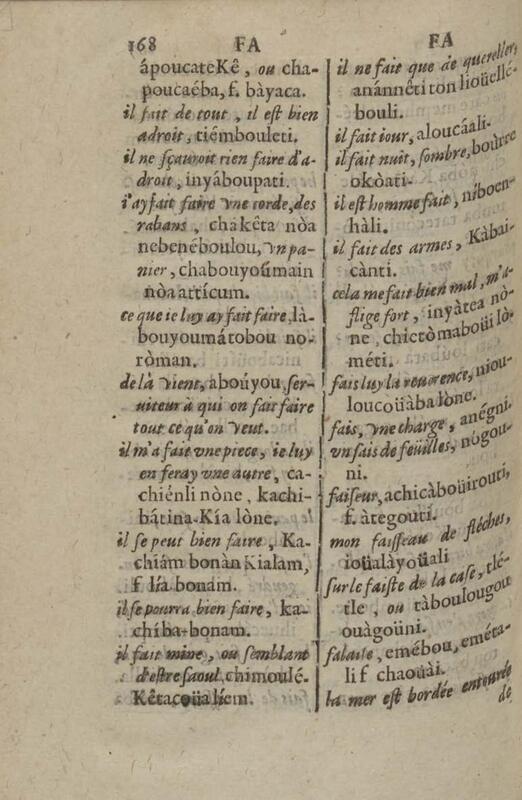 168 FA
ápoucateKê, ou cha-
poucaéba, f. bàyaca.
il fait de tout, il est bien
adroit, tiémbouleti.
il ne sçauroit rien faire d'a-
droit, inyáboupati.
i'ay fait faire vne corde, des
rabans, chakêta nòa
nebenéboulou, vn pa-
nier, chabouyoúmain
nòa attícum.
ce que ie luy ay fait faire, là-
bouyoumátobou no-
ròman.
de là vient, aboúyou, ser-
uiteur à qui on fait faire
tout ce qu'on veut.
il m'a fait vne piece, ie luy
en feray vne autre, ca-
chiénli nòne, kachi-
bátina-Kía lòne.
il se peut bien faire, Ka-
chiám bonàn Kialam,
f. lía bonam.
il se pourra bien faire, ka-
chíba-bonam.
il fait mine, ou semblant
d'estre saoul, chimoulé-
Kêtacoüaliem.
FA
il ne fait que de quereller,
anánnêti ton lioüellé-
bouli.
il fait iour, aloucáali-
il fait nuit, sombre, boùrre
okòati-
il est homme fait, niboen-
hàli.
il fait des armes, Kàbai-
cànti.
cela me fait bien mal, m'a-
flige fort, inyàtea nò-
ne, chictòmaboüi lò-
méti.
fais luy la reuerence, niou-
loucoüàba lòne.
fais, vne charge, anégni,
vn fais de feüilles, nògou-
ni.
faiseur, achicàboüirouti,
f. àtegouti.
mon faisseau de fléches,
ioüalàyoüali
sur le faiste de la case, tlé-
tle, ou tàboulougou
ouàgoüni.
falaise, emébou, eméta-
li f chaouài.
la mer est bordée entourée
de